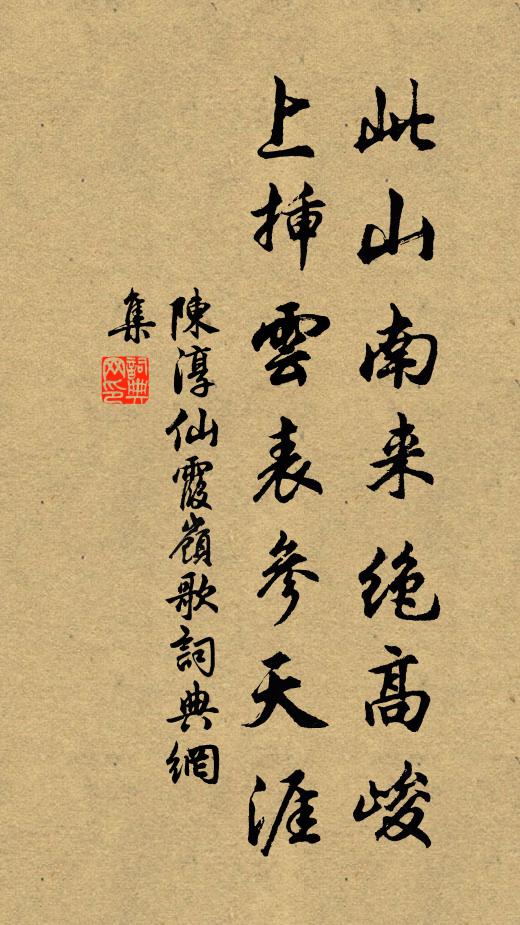 此山南来绝高峻
上揷雲表參天涯
陳淳仙霞嶺歌詞典網
集
詞典
网印